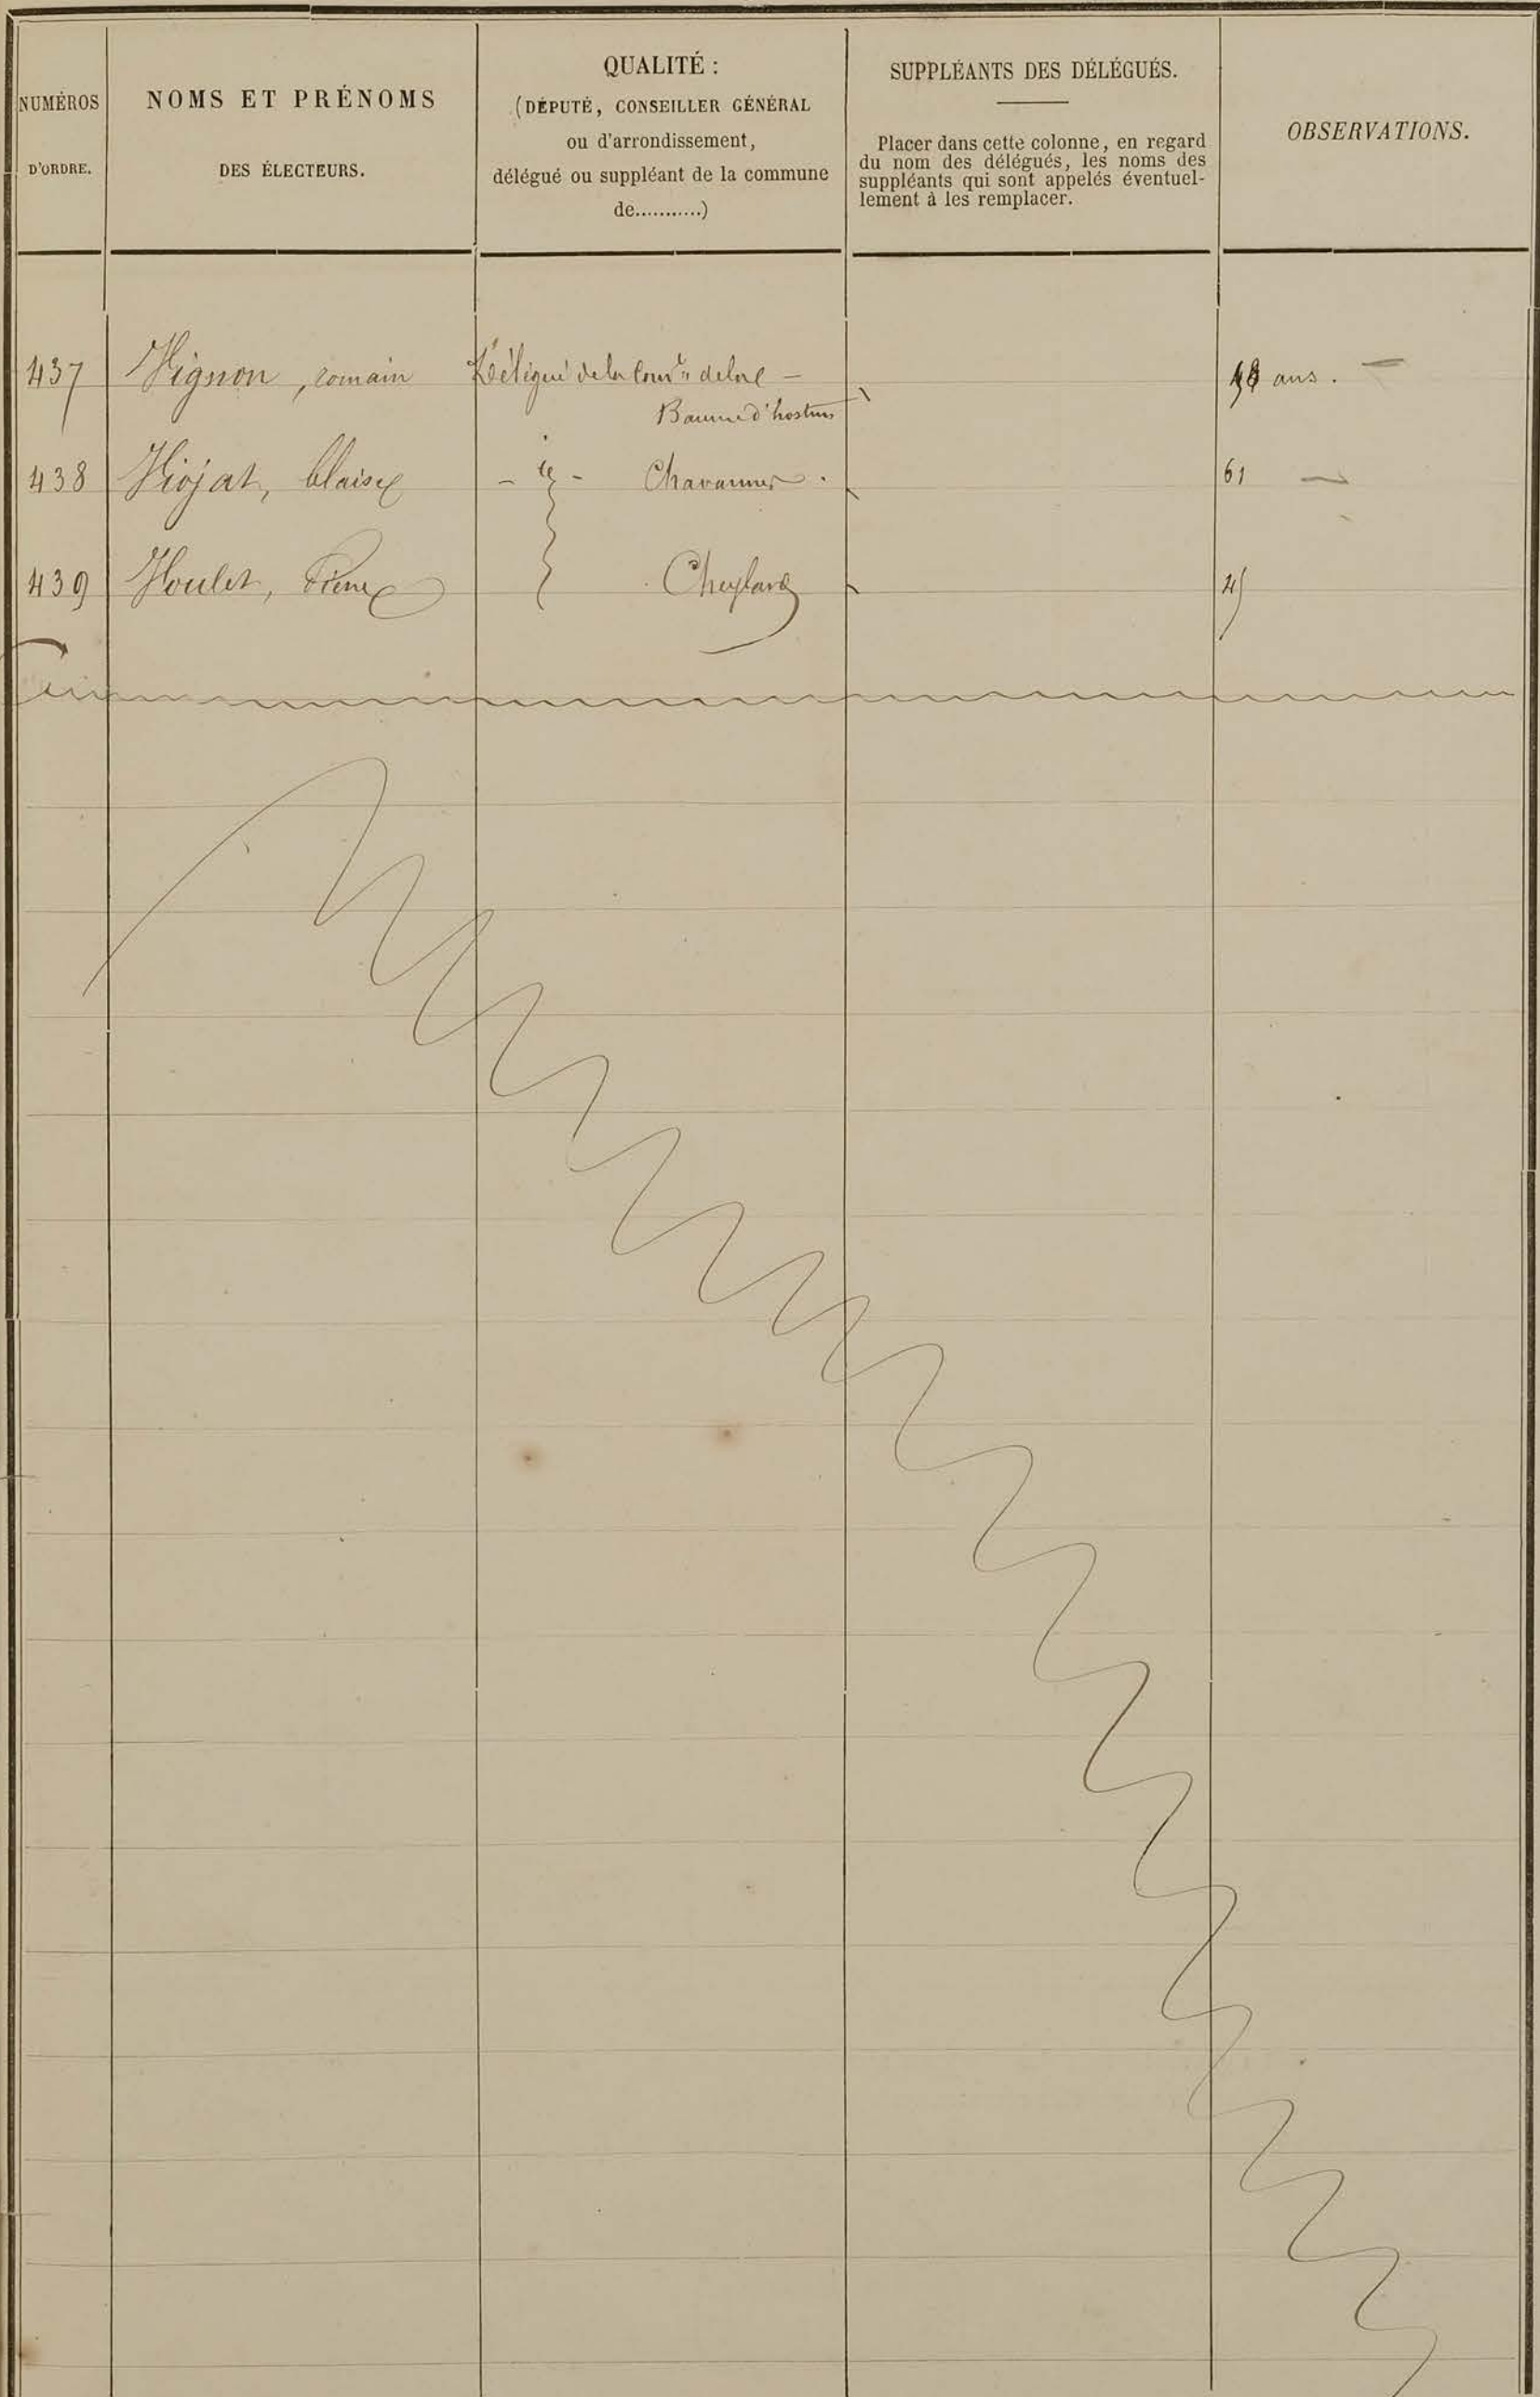 NUMÉROS
D'ORDRE.
NOMS ET PRÉNOMS
DES ÉLECTEURS.
QUALITÉ :
(DÉPUTÉ, CONSEILLER GÉNÉRAL
ou d'arrondissement,
délégué ou suppléant de la commune
de...........)
SUPPLÉANTS DES DÉLÉGUÉS.
Placer dans cette colonne, en regard
du nom des délégués, les noms des
suppléants qui sont appelés éventuel-
lement à les remplacer.
OBSERVATIONS.
437 Vignon, romain Délégué de la Comne de la - ans.
Baume d'hostun
438 Viojat, blaise - Chavannes. 61
439 Voulet, Pierre Cheylard 45